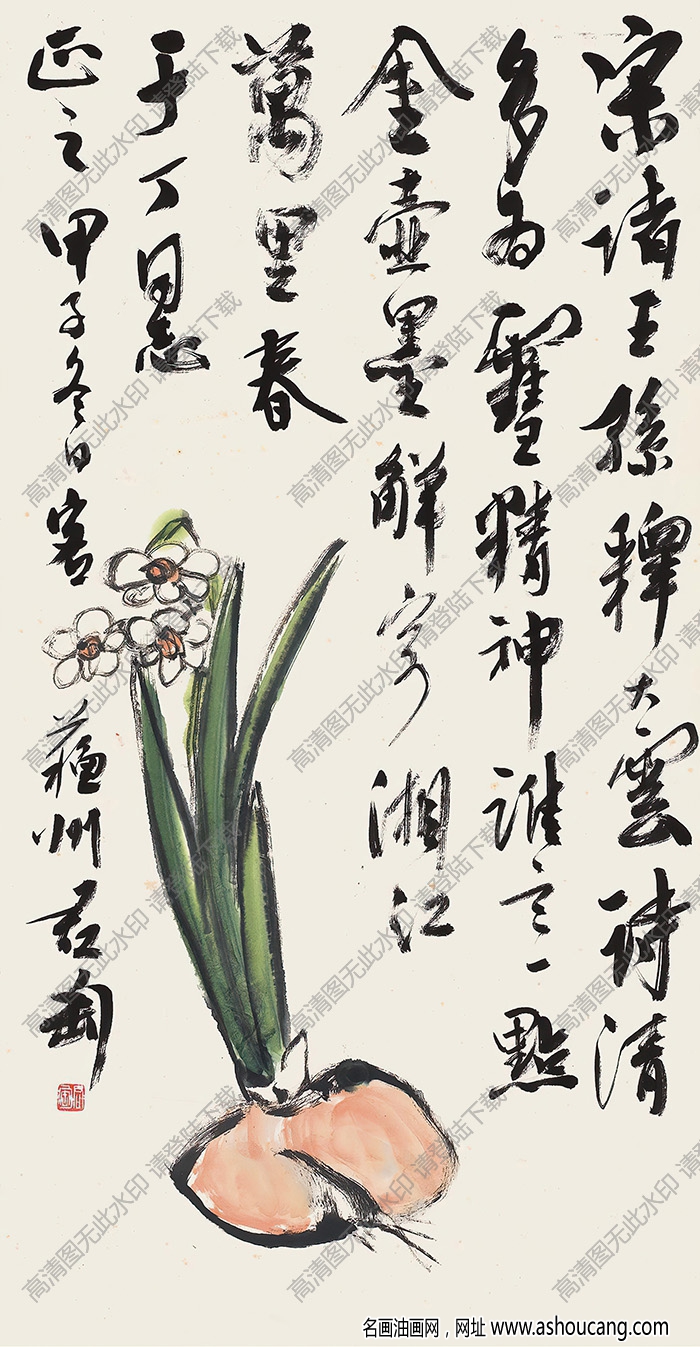 宋諸王孫釋大雲詩清
多為雪精神誰言一點
金壺墨解寫湘江
萬里春
于丁同志
正之甲子冬日客蘇州君匋
高清图无此水印 请登陆下载
名画油画网，网址 www.ashoucang.com